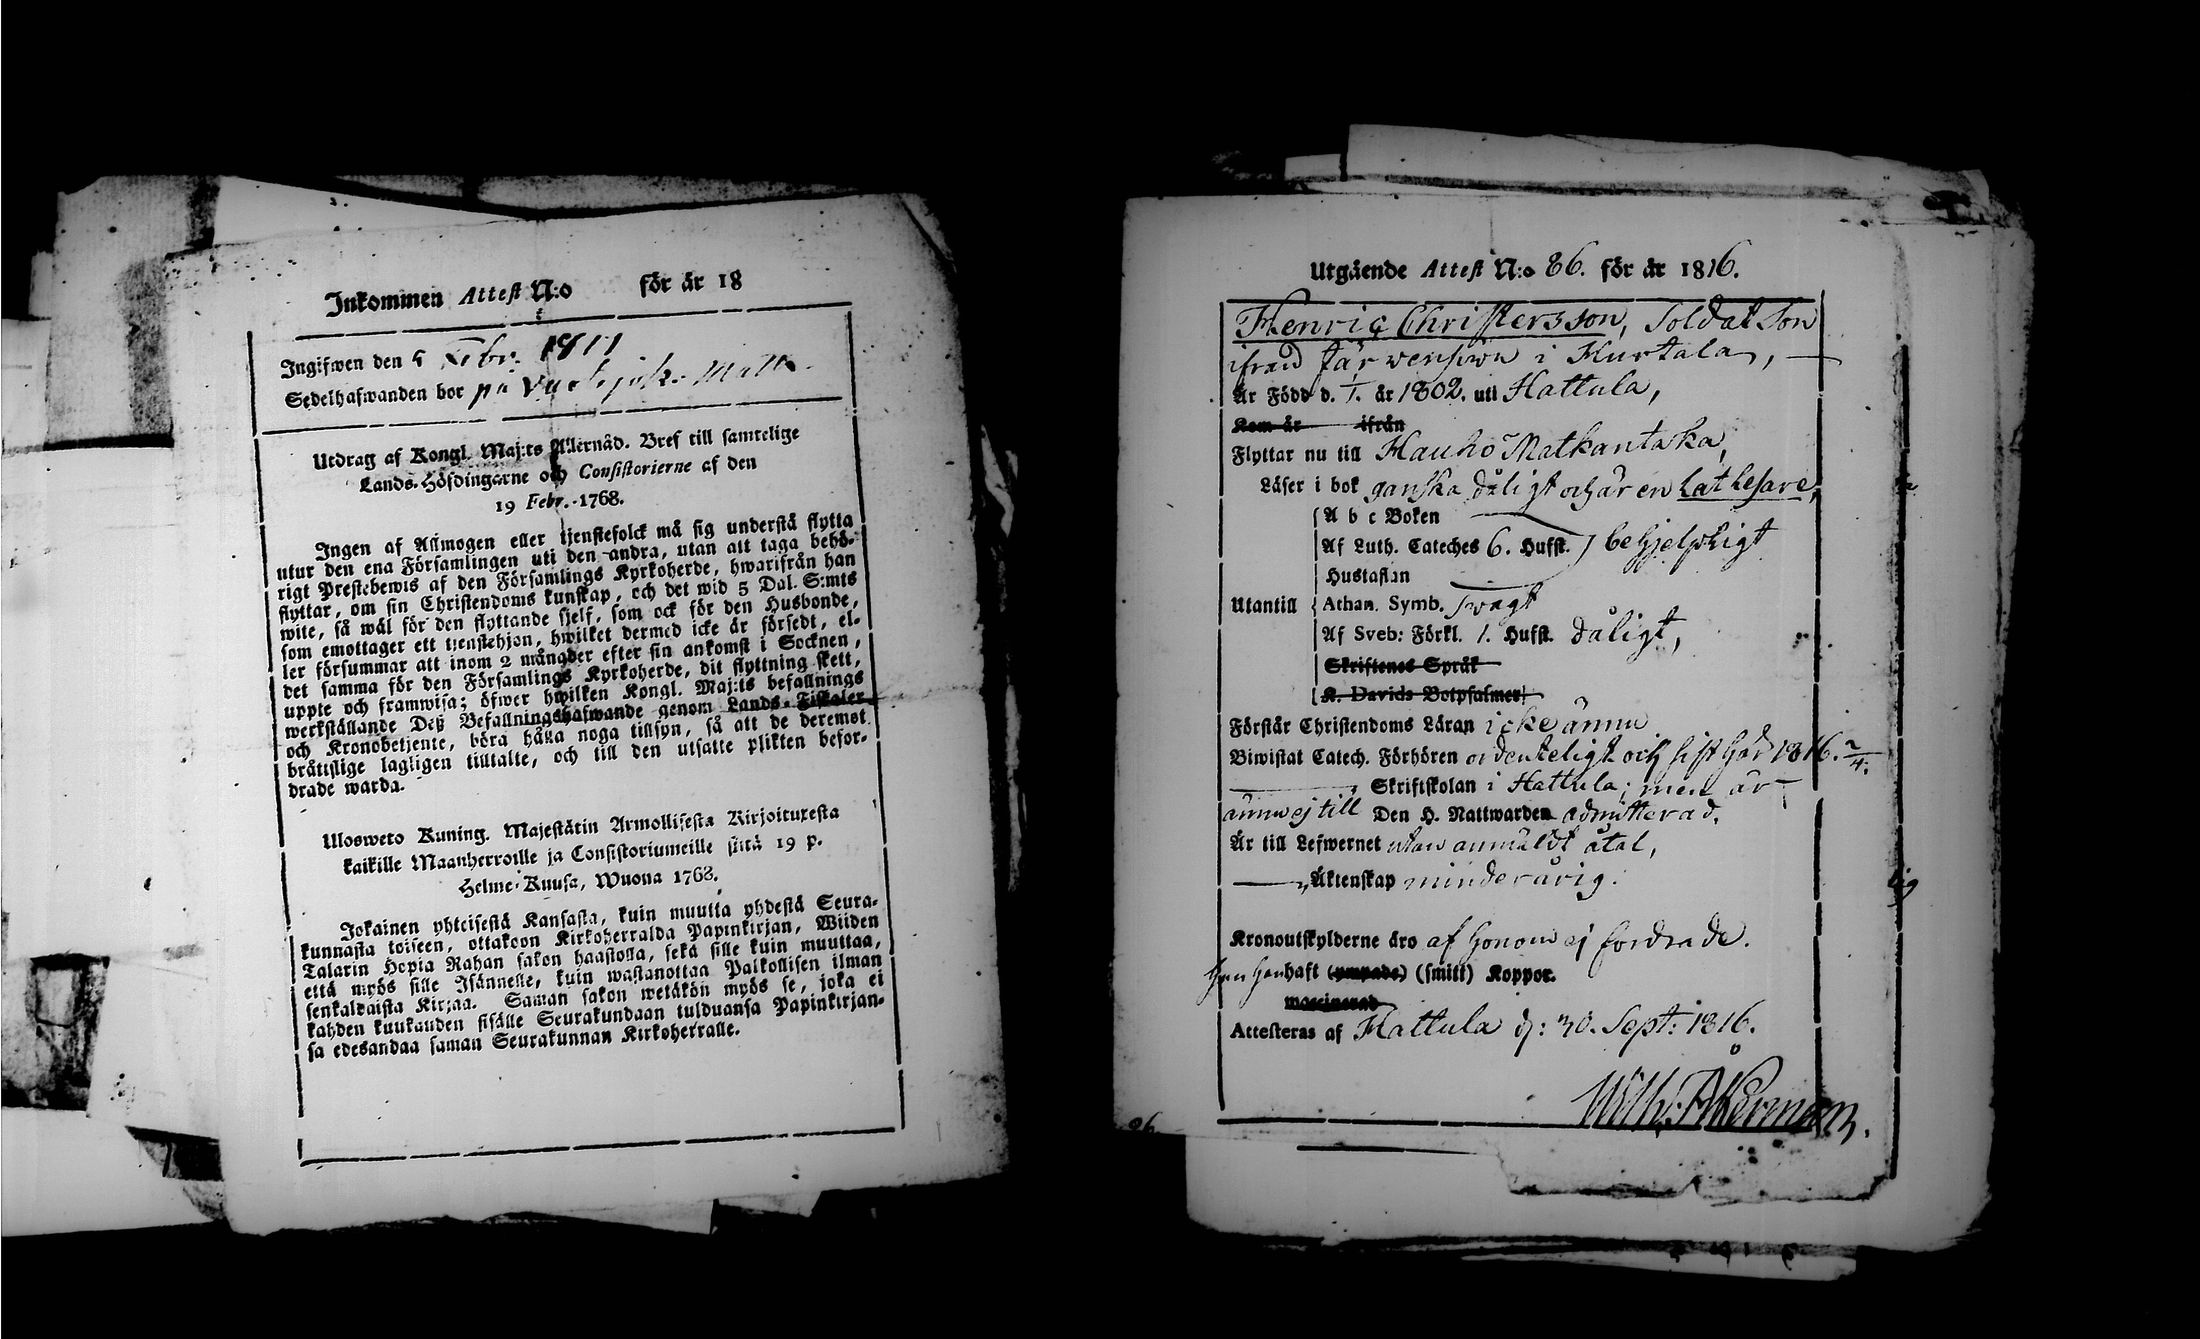 Inkommen Attest N:o för år 18
Ingifwen den 5 Febr. 1817
Sedelhafwanden bor på
Utdrag af Kongl. Maj:ts Allernåd. Bref till samtelige
Lands-Höfdingarne och Consistorierne af den
19 Febr. 1768.
Ingen af Allmogen eller tjenstefolck må sig understå flytta
utur den ena Församlingen uti den andra, utan att taga behö-
rigt Prestebewis af den Församlings Kyrkoherde, hwarifrån han
flyttar, om sin Christendoms kunskap, och det wid 5 Dal. S:mts
wite, så wäl för den flyttande sjelf, som ock för den Husbonde,
som emottager ett tjenstehjon, hwilket dermed icke är försedt, el-
ler försummar att inom 2 månader efter sin ankomst i Socknen,
det samma för den Församlings Kyrkoherde, dit flyttning skett,
uppte och framwisa; öfwer hwilken Kongl. Maj:ts befallnings
werkställande Deß Befallningshafwande genom Lands-Fiskaler
och Kronobetjente, böra hålla noga tillsyn, så att de deremot
bråttslige lagligen tilltalte, och till den utsatte plikten befor-
drade warda.
Ulosweto Kuning. Majestätin Armollisesta Kirjoituxesta
kaikille Maanherroille ja Consistoriumeille siitä 19 p.
Helme-Kuusa, Wuona 1768.
Jokainen yhteisestä Kansasta, kuin muutta yhdestä Seura-
kunnasta toiseen, ottakoon Kirkoherralda Papinkirjan, Wiiden
Talarin Hopia Rahan sakon haastolla, sekä sille kuin muuttaa,
että myös sille Isännelle, kuin wastanottaa Palkollisen ilman
senkaldaista Kirjaa. Saman sakon wetäkön myös se, joka ei
kahden kuukauden sisälle Seurakundaan tulduansa Papinkirjan-
sa edesandaa saman Seurakunnan Kirkoherralle.
Utgående Attest N:o 86. för år 1816.
Henric Christersson, Soldat Son
ifrån Järwenswu i Hurtala,
Är Född d. 1/1. år 1802. uti Hattula,
Kom år ifrån
Flyttar nu till Hauho Matkantaka,
Läser i bok ganska dåligt och är en lat lesare,
A b c Boken
Af Luth. Cateches 6. Hufst. behjelpligt
Hustaflan
Utantill Athan. Symb. swagt
Af Sveb: Förkl. 1. Hufst. dåligt,
Skriftenes Språk
K. Davids Botpsalmer
Förstår Christendoms Läran icke ännu
Biwistat Catech. Förhören ordenteligt och sist här 1816. 2/4.
Skriftskolan i Hattula; men är
ännu ej till Den H. Nattwarden admitterad.
Är till Lefwernet utan anmäldt åtal,
Äktenskap minderårig.
Kronoutskylderne äro af honom ej fordrade.
Han har haft (ympade) (smitt) Koppor.
vaccinerad
Attesteras af Hattula d: 30. Sept: 1816.
Wilh: Åkerman.
86
lig